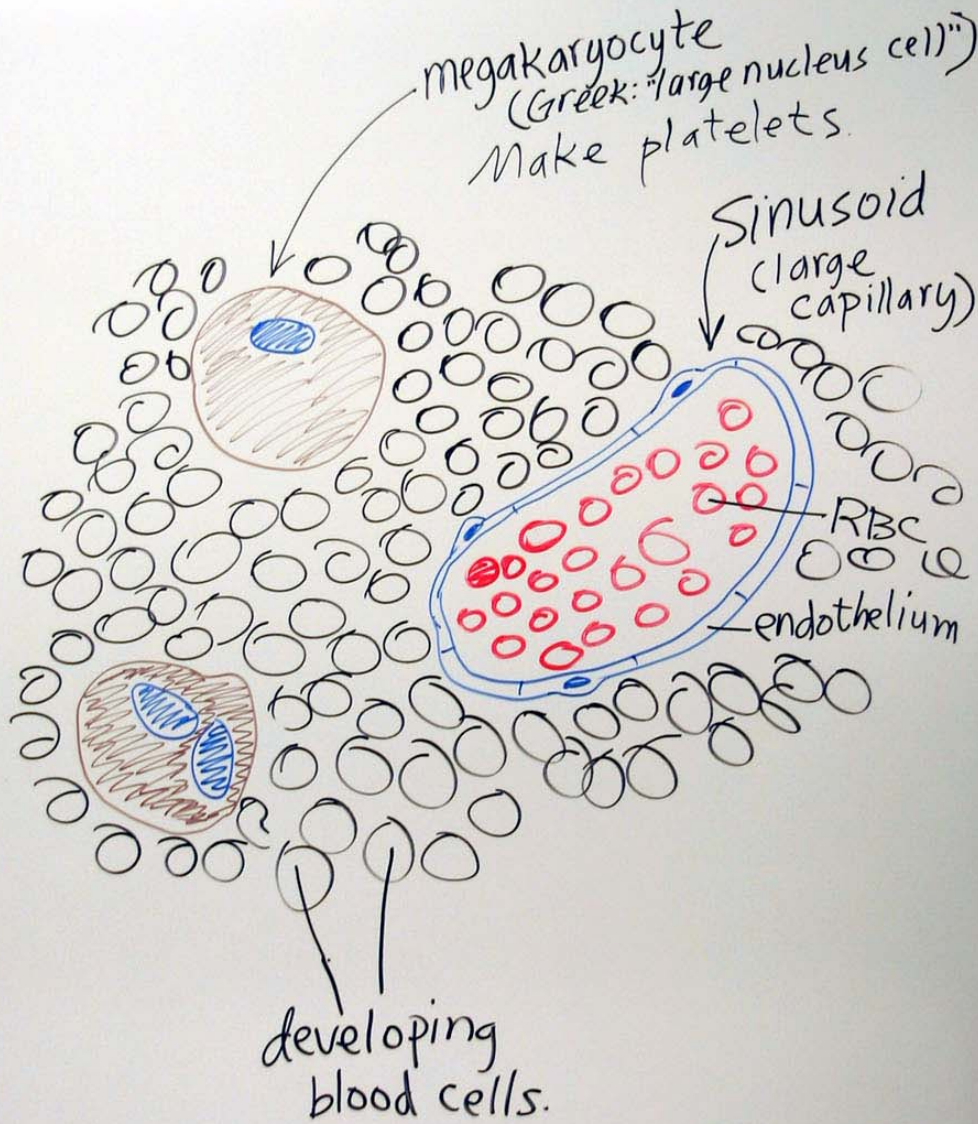 megakaryocyte
(Greek: "large nucleus cell)")
Make platelets.
Sinusoid
(large
capillary)
RBC
endothelium
developing
blood cells.